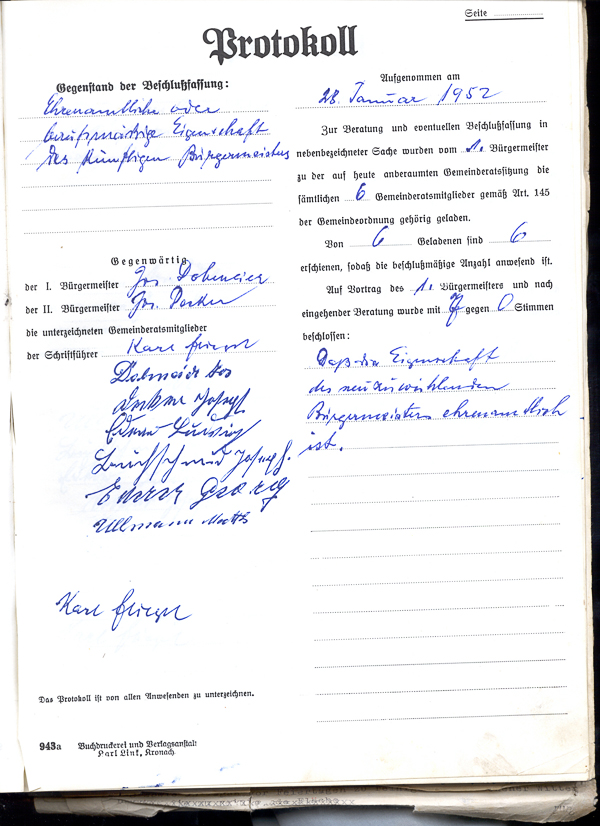 Seite
Protokoll
Gegenstand der Beschlußfassung:
Ehrenamtliche oder
berufsmässige Eigenschaft
des künftigen Bürgermeisters
Gegenwärtig
der I. Bürgermeister Jos. Dobmeier
der II. Bürgermeister Jos.
die unterzeichneten Gemeinderatsmitglieder
der Schriftführer Karl
Dobmeier Jos
Josef
Ludwig
Josef
Georg
Ullmann Matth
Karl
Das Protokoll ist von allen Anwesenden zu unterzeichnen.
943a Buchdruckerei und Verlagsanstalt
Carl Link, Kronach
Aufgenommen am
28. Januar 1952
Zur Beratung und eventuellen Beschlußfassung in
nebenbezeichneter Sache wurden vom 1. Bürgermeister
zu der auf heute anberaumten Gemeinderatssitzung die
sämtlichen 6 Gemeinderatsmitglieder gemäß Art. 145
der Gemeindeordnung gehörig geladen.
Von 6 Geladenen sind 6
erschienen, sodaß die beschlußmäßige Anzahl anwesend ist.
Auf Vortrag des 1. Bürgermeisters und nach
eingehender Beratung wurde mit gegen 0 Stimmen
beschlossen:
Daß die Eigenschaft
des neuzuwählenden
Bürgermeisters ehrenamtlich
ist.